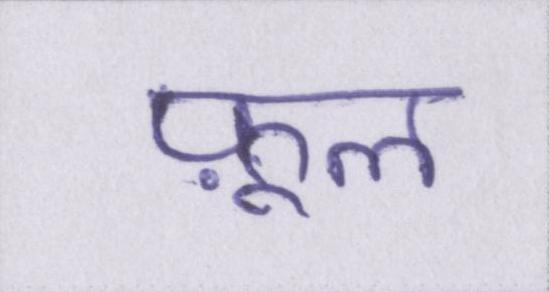 फ़ूल